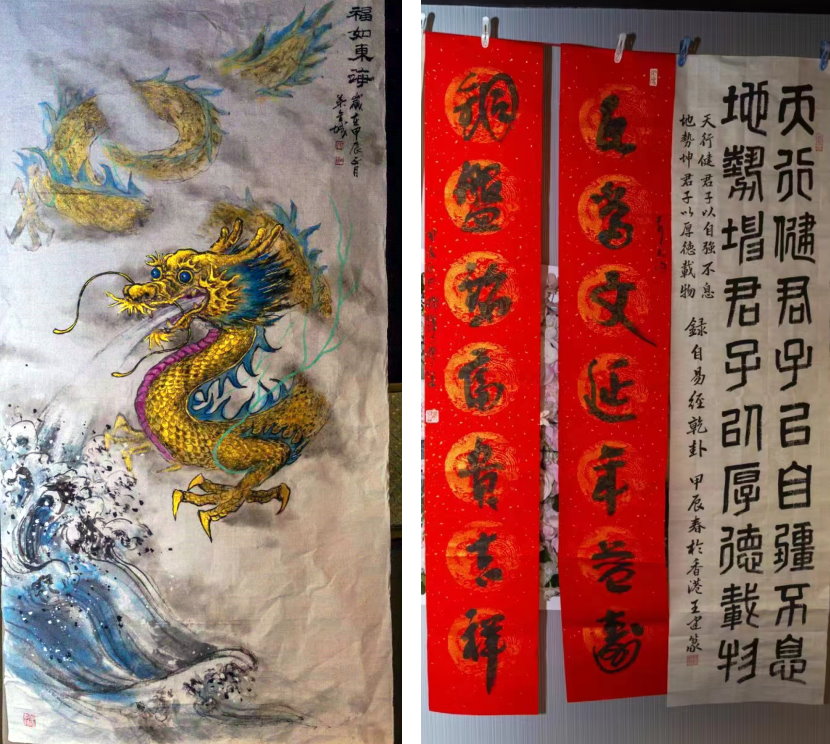 福如東海
歲在甲辰正月
天行健君子以自彊不息
地勢坤君子以厚德載物
天行健君子以自強不息
地勢坤君子以厚德載物
錄自易經乾卦 甲辰春於香港王建篆
瓦當文延年益壽
銅盤銘富貴吉祥